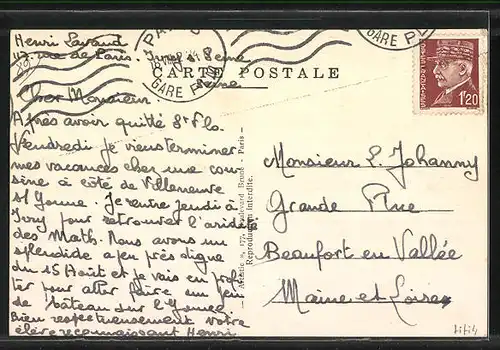 Henri Lavaud
17 rue de Paris. Ivry s. Seine
Seine
CARTE POSTALE
PARIS
GARE P
GARE P
1F20
Cher Monsieur
Après avoir quitté St Flo.
Vendredi je viens terminer
mes vacances chez une cou-
sine à côté de Villeneuve
s/ Yonne. Je rentre jeudi à
Ivry pour retrouver l'aridité
des Maths. Nous avons un
splendide à peu près digne
du 15 Août et je vais en profi-
ter pour aller faire un peu
de bâteau sur l'Yonne
Bien respectueusement votre
élève reconnaissant Henri
127, Boulevard Brune - Paris -
Reproduction Interdite.
Monsieur L. Johanny
Grande Rue
Beaufort en Vallée
Maine et Loire